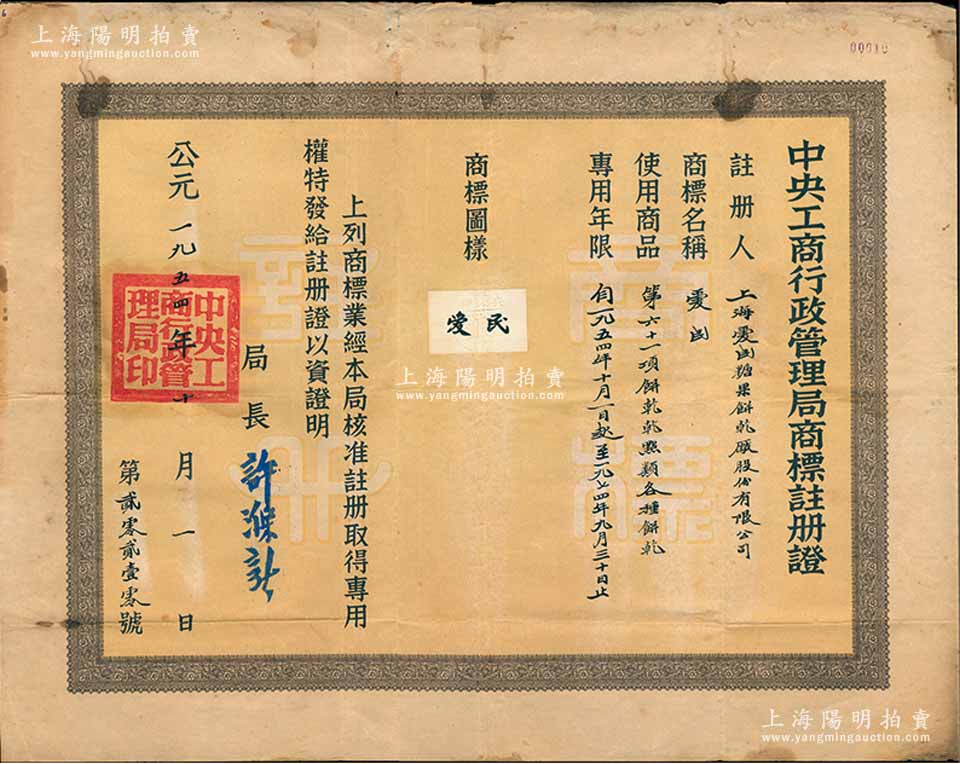 上海陽明拍賣
www.yangmingauction.com
00010
中央工商行政管理局商標註册證
註册人 上海愛民糖果餅乾厰股份有限公司
商標名稱 愛民
使用商品 第六十一項餅乾乾點類各種餅乾
專用年限 自一九五四年十月一日起至一九七四年九月三十日止
商標圖樣
民愛
上海陽明拍賣
www.yangmingauction.com
上列商標業經本局核准註册取得專用
權特發給註册證以資證明
局長 許滌新
中央工商行政管理局印
公元一九五四年十月一日
第貳零貳壹零號
商標註册
上海陽明拍賣
www.yangmingauction.com